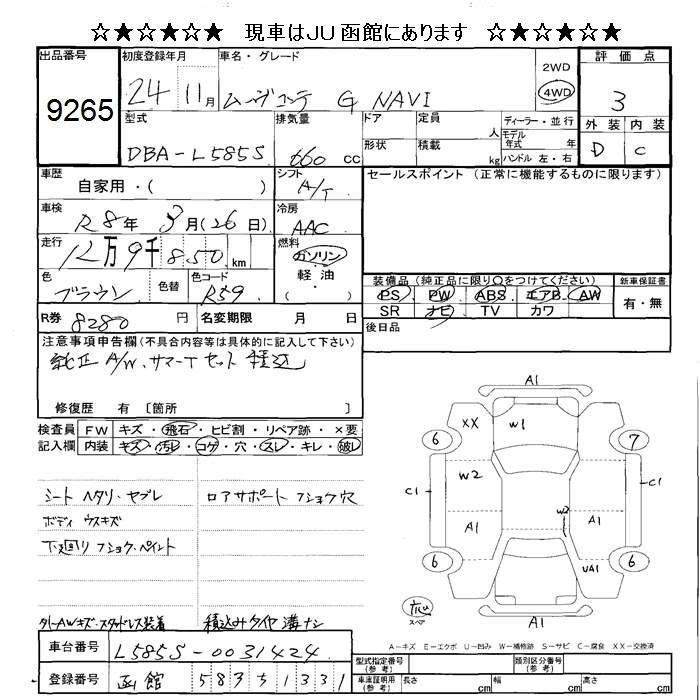 ☆★☆★☆★ 現車はJU函館にあります ☆★☆★☆★
出品番号
9265
初度登録年月
24 11月
車名・グレード
ムーヴコンテ G NAVI
2WD
4WD
評価点
3
外装 内装
D C
型式
DBA-L585S
排気量
660 cc
ドア
形状
定員 人
積載 kg
ディーラー・並行
モデル年式 年
ハンドル 左・右
車歴
自家用・( )
シフト
A/T
車検
R8年 3月(26日)
冷房
AAC
走行
12万9千850 km
燃料
ガソリン
軽油
( )
色
ブラウン
色替
色コード
R59
R券
8280 円
名変期限 月 日
セールスポイント (正常に機能するものに限ります)
装備品(純正品に限り○をつけてください)
PS PW ABS エアB. AW
SR ナビ TV カワ
新車保証書
有・無
後日品
注意事項申告欄(不具合内容等は具体的に記入して下さい)
純正A/W.サマーTセット積込
修復歴 有 〔箇所 〕
検査員記入欄
FW キズ・飛石・ヒビ割・リペア跡・×要
内装 キズ・汚レ・コゲ・穴・スレ・キレ・破レ
シート ヘタリ・ヤブレ
ロアサポート フショク穴
ボディ ウスキズ
下廻り フショク・ペイント
タイヤ溝ナシ
A1
XX
W1
6
7
W2
C1
C1
W2
A1
A1
UA1
6
6
スペア
A1
A-キズ E-エクボ U-凹み W-補修跡 S-サビ C-腐食 XX-交換済
車台番号
L585S-0031424
登録番号
函館 583 5 1331
型式指定番号(参考)
類別区分番号(参考)
車庫証明用(参考)
長さ cm
幅 cm
高さ cm